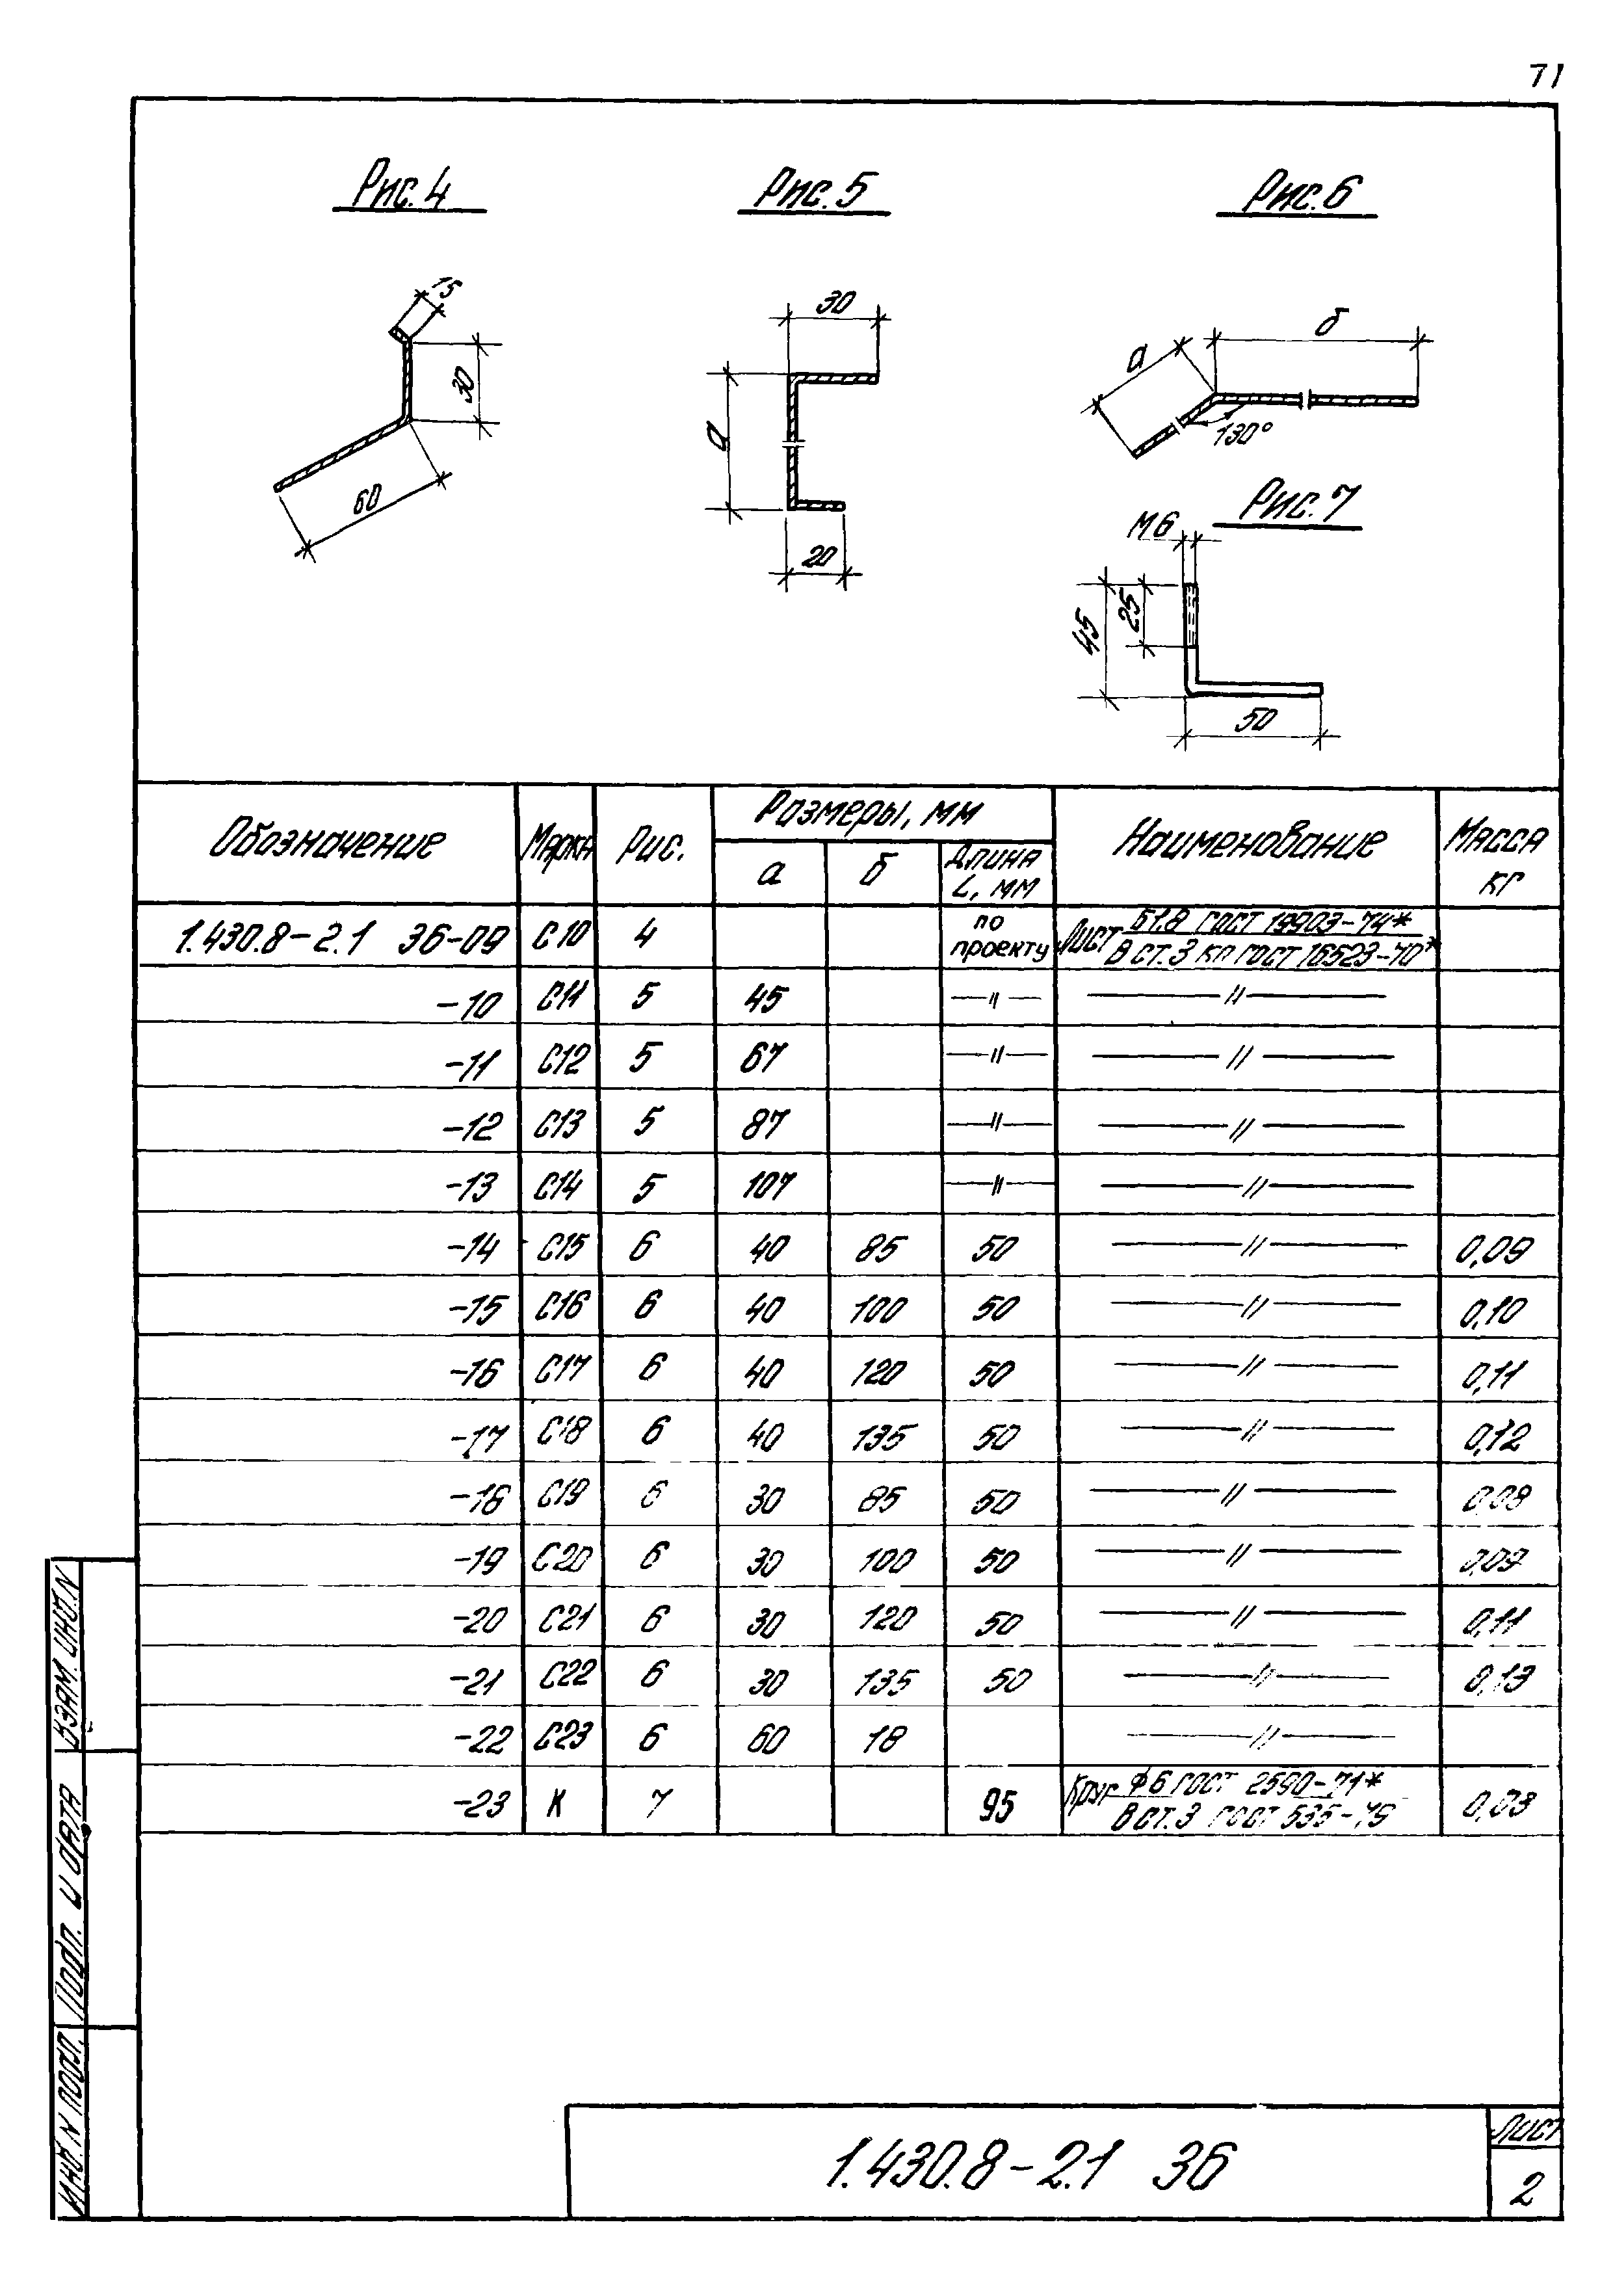 71
Рис. 4
Рис. 5
Рис. 6
15
30
60
30
а
20
а
б
130°
Рис. 7
М6
45
25
50
Обозначение Марка Рис. Размеры, мм Наименование Масса кг
а б Длина L, мм
1.430.8-2.1 36-09 С10 4 по проекту Лист Б1.8 ГОСТ 19903-74* В ст. 3 кп ГОСТ 16523-70*
-10 С11 5 45 —〃— —〃—
-11 С12 5 67 —〃— —〃—
-12 С13 5 87 —〃— —〃—
-13 С14 5 107 —〃— —〃—
-14 С15 6 40 85 50 —〃— 0,09
-15 С16 6 40 100 50 —〃— 0,10
-16 С17 6 40 120 50 —〃— 0,11
-17 С18 6 40 135 50 —〃— 0,12
-18 С19 6 30 85 50 —〃— 0,08
-19 С20 6 30 100 50 —〃— 0,09
-20 С21 6 30 120 50 —〃— 0,11
-21 С22 6 30 135 50 —〃— 0,13
-22 С23 6 60 18 —〃—
-23 К 7 95 Круг ф6 ГОСТ 2590-71* В ст. 3 ГОСТ 535-79 0,03
Взам. инв. N
Подп. и дата
Инв. N подл.
1.430.8-2.1 36
Лист
2